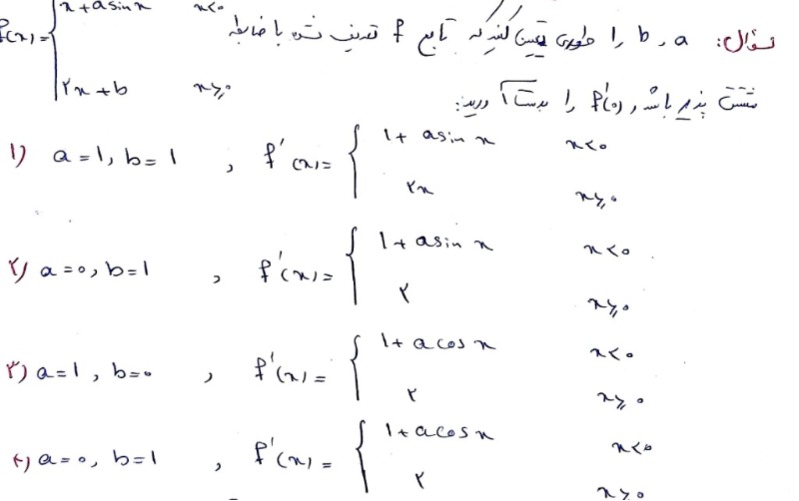 سؤال: a و b را طوری تعیین کنید که تابع f تعریف شده با ضابطه
f(x) = { x + a sin x    x < 0
۲x + b    x ≥ 0
مشتق پذیر باشد و f'(0) را بدست آورید:
۱) a = 1, b = 1 , f'(x) = { 1 + a sin x    x < 0
۲x    x ≥ 0
۲) a = 0, b = 1 , f'(x) = { 1 + a sin x    x < 0
۲    x ≥ 0
۳) a = 1, b = 0 , f'(x) = { 1 + a cos x    x < 0
۲    x ≥ 0
۴) a = 0, b = 1 , f'(x) = { 1 + a cos x    x < 0
۲    x ≥ 0